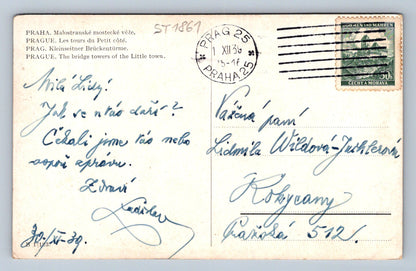 PRAHA. Malostranské mostecké věže.
PRAGUE. Les tours du Petit côté.
PRAG. Kleinseitner Brückentürme.
PRAGUE. The bridge towers of the Little town.
ST1861
PRAG 25
1 XII 39
15-17
PRAHA 25
BÖHMEN UND MÄHREN
50
ČECHY A MORAVA
Milá Lidy!
Jak se daří?
Čekali jsme Vás nebo
aspoň zprávu.
Zdraví
Ladislav
30/XI-39.
Vážená paní
Lidmila Wildová-
Rokycany
Pražská 512.